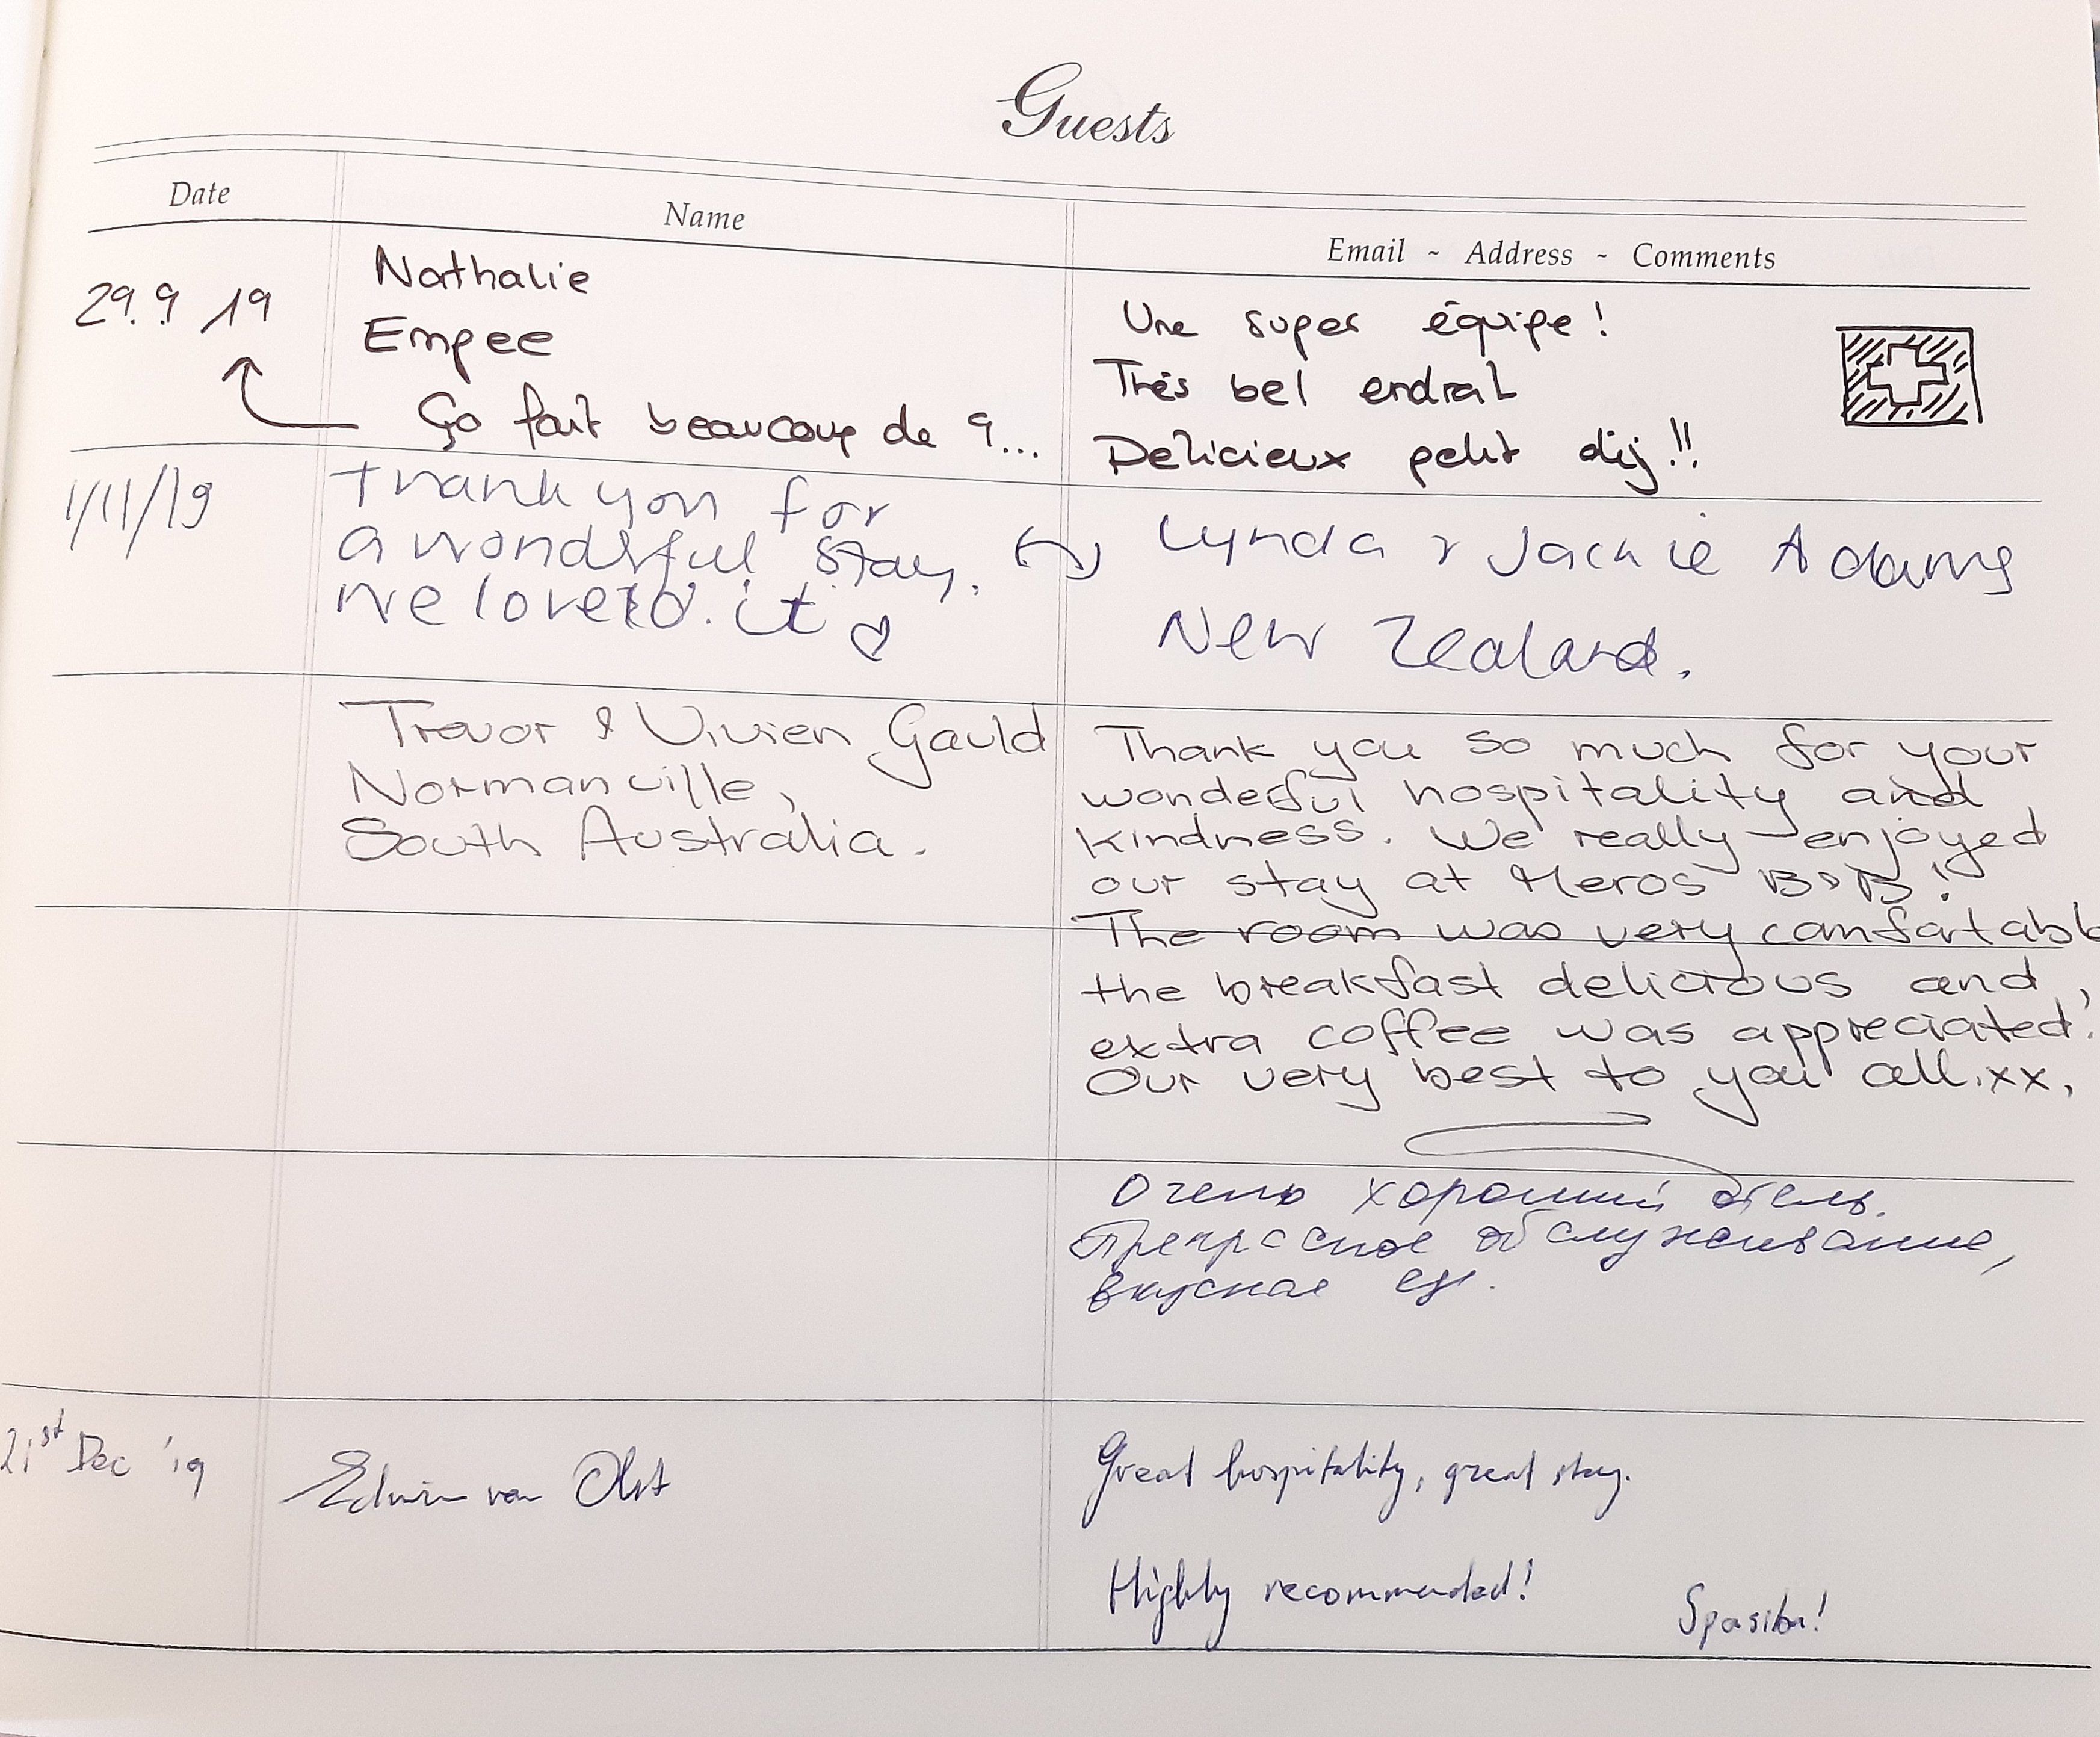 Guests
Date
Name
Email ~ Address - Comments
29.9.19
Nathalie
Empee
Ça fait beaucoup de 9...
Une super équipe!
Très bel endroit
Délicieux petit déj!!
1/11/19
Thank you for
a wonderful stay.
we loved it ♡
Lynda & Jackie Adams
New Zealand.
Trevor & Vivien Gauld
Normanville,
South Australia.
Thank you so much for your
wonderful hospitality and
kindness. We really enjoyed
our stay at Heros B&B!
The room was very comfortabl
the breakfast delicious and,
extra coffee was appreciated!
Our very best to you all.xx,
Очень хороший отель.
Прекрасное обслуживание,
вкусная еда.
21st Dec '19
Edwin van Olst
Great hospitality, great stay.
Highly recommended!
Spasiba!